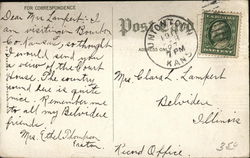 FOR CORRESPONDENCE
Dear Mrs. Lampert:- I
am visiting in Bourbon
Co. Kansas, so thought
I would send you
a view of the Court
House. The country
around here is quite
nice. Remember me
to all my Belvidere
friends.
Mrs. Ethel Thompson
UNIONTOWN
7 PM
KANS.
Mrs. Clara L. Lampert
Belvidere
Illinois
Record Office.